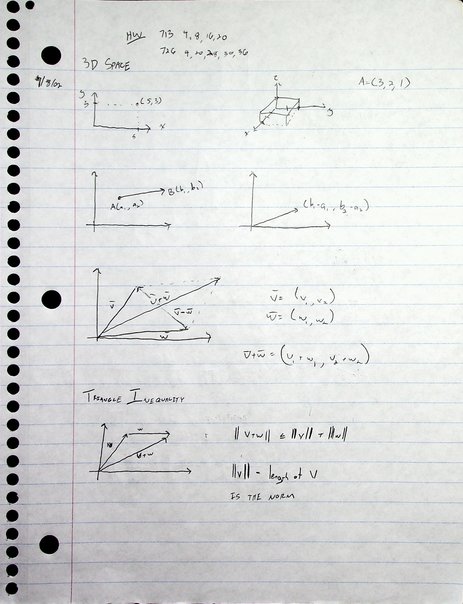 HW 713 4, 8, 16, 20
726 4, 20, 30, 36
3D SPACE
y
3
(5,3)
5
x
z
y
x
A=(3,2,1)
A(a₁, a₂)
B(b₁, b₂)
(b₁-a₁, b₂-a₂)
v̅
v̅+w̅
v̅-w̅
w̅
v̅ = (v₁, v₂)
w̅ = (w₁, w₂)
v̅+w̅ = (v₁+w₁, v₂+w₂)
TRIANGLE INEQUALITY
w
v+w
||v+w|| ≤ ||v|| + ||w||
||v|| - length of V
IS THE NORM